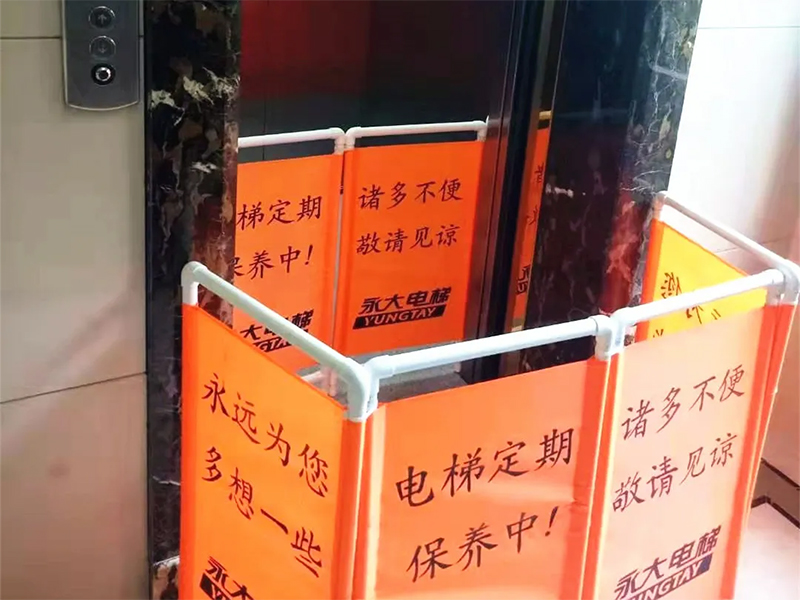 梯定期
保养中!
大电梯
诸多不便
敬请见谅
永大电梯
YUNGTAY
永远为您
多想一些
永大电梯
电梯定期
保养中!
诸多不便
敬请见谅
永大电梯
YUNGTAY
您